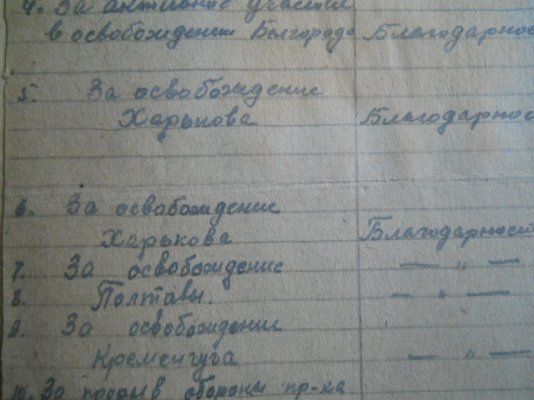 4. За активное участие
в освобождении Белгорода Благодарнос
5. За освобождение
Харькова Благодарнос
6. За освобождение
Харькова Благодарност
7. За освобождение — " —
8. Полтавы. — " —
9. За освобождение
Кременчуга — " —
10. За прорыв обороны пр-ка